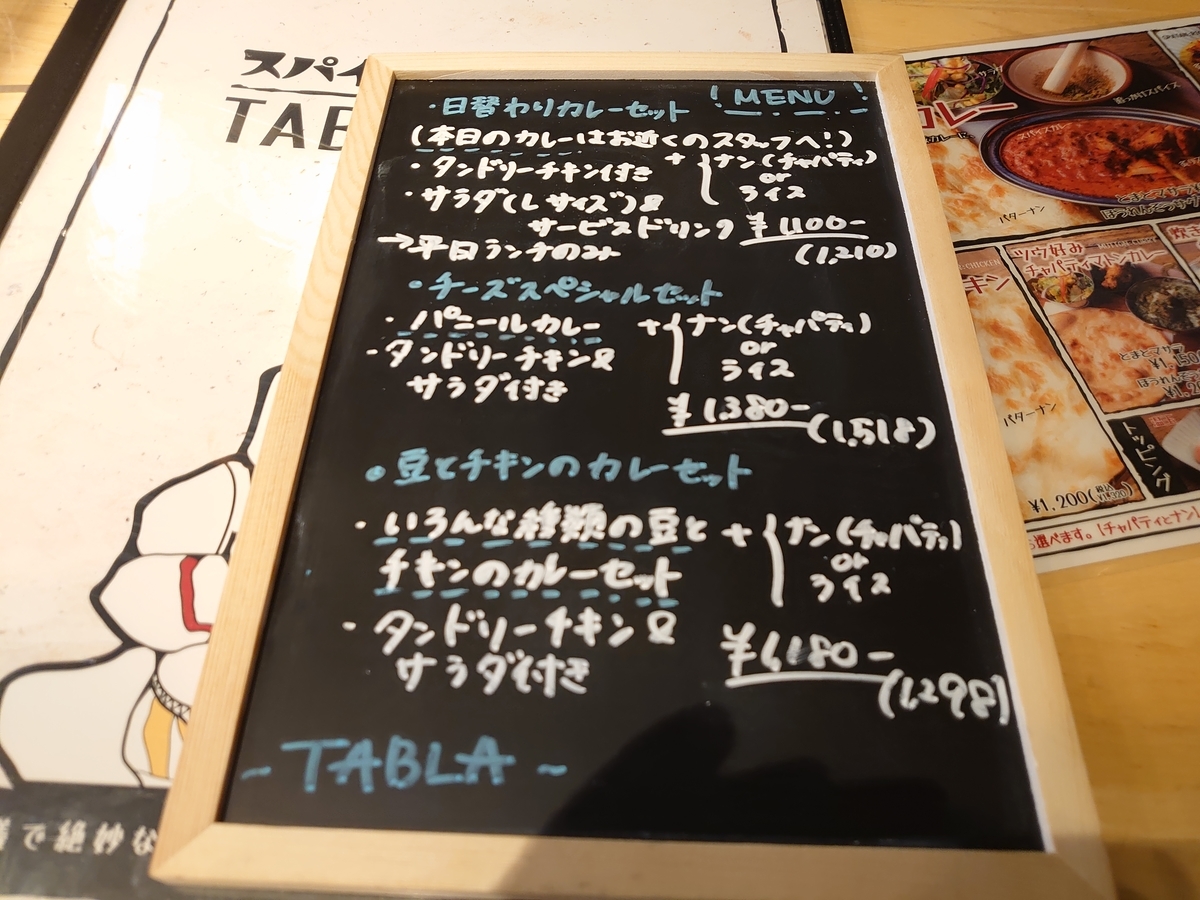 スパイ
TAB
!MENU!
・日替わりカレーセット
(本日のカレーはお近くのスタッフへ!)
・タンドリーチキン付き
+ ナン(チャパティ)
or
ライス
・サラダ(Lサイズ)&
サービスドリンク ¥1,100-
(1,210)
→平日ランチのみ
・チーズスペシャルセット
・パニールカレー
+ ナン(チャパティ)
or
ライス
・タンドリーチキン&
サラダ付き
¥1,380-
(1,518)
・豆とチキンのカレーセット
・いろんな種類の豆と
チキンのカレーセット
+ ナン(チャパティ)
or
ライス
・タンドリーチキン&
サラダ付き
¥1,180-
(1,298)
~TABLA~
で絶妙な
カレー
スパイスカレー
追っかけスパイス
とまとマサラ
バターナン
キン
CHICKEN
ツウ好み
チャパティマトンカレー
とまとマサラ
バターナン
¥1,200
トッピング
選べます。(チャパティとナン